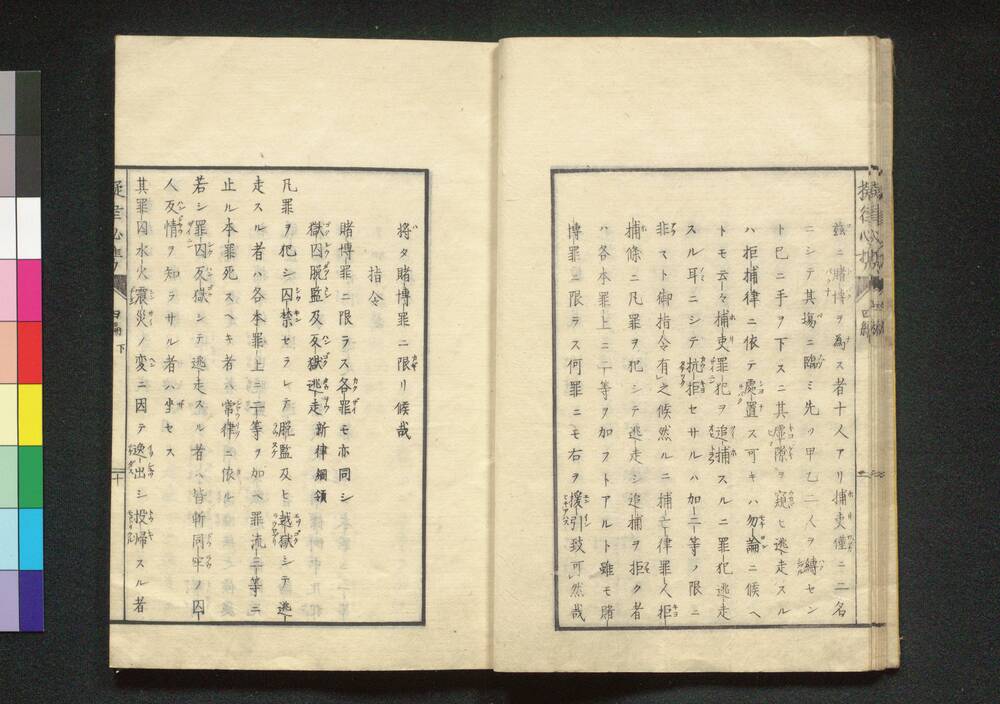 茲ニ賭博ヲ為ス者十人アリ捕吏僅ニ二名
ニシテ其場ニ臨ミ先ツ甲乙二人ヲ縛セン
ト已ニ手ヲ下スニ其虚隙ヲ窺ヒ逃走スル
ハ拒捕律ニ依テ處置ス可キハ勿論ニ候ヘ
トモ云々捕吏罪犯ヲ追捕スルニ罪犯逃走
スル耳ニシテ抗拒セサルハ加二等ノ限ニ
非スト御指令有之候然ルニ捕亡律罪人拒
捕條ニ凡罪ヲ犯シテ逃走シ追捕ヲ拒ク者
ハ各本罪上ニ二等ヲ加フトアルト雖モ賭
博罪ニ限ラス何罪ニモ右ヲ援引致可然哉
将タ賭博罪ニ限リ候哉
指令
賭博罪ニ限ラス各罪モ亦同シ
獄囚脱監及反獄逃走 新律綱領
凡罪ヲ犯シ囚禁セラレテ脱監及ヒ越獄シテ逃
走スル者ハ各本罪上ニ二等ヲ加ヘ罪流三等ニ
止ル本罪死スヘキ者ハ常律ニ依ル
若シ罪囚反獄シテ逃走スル者ハ皆斬同牢ノ囚
人反情ヲ知ラサル者ハ坐セス
其罪囚水火震災ノ変ニ因テ逸出シ投帰スル者
四編 下
二十